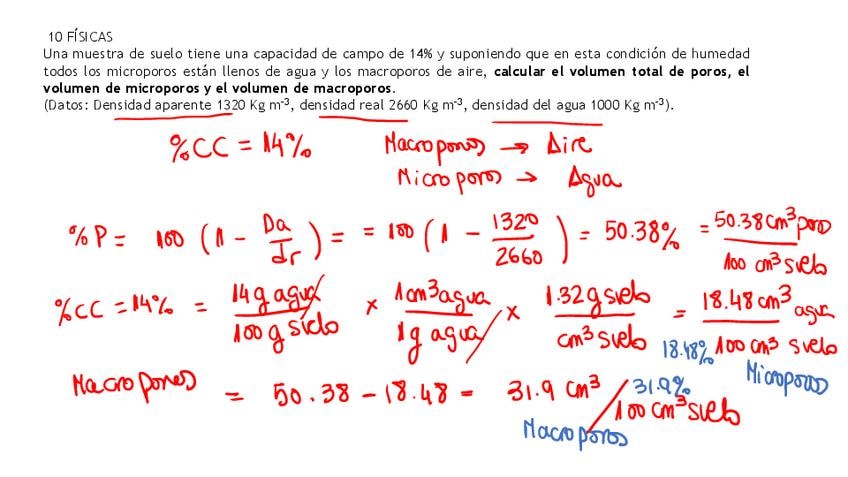 10 FÍSICAS
Una muestra de suelo tiene una capacidad de campo de 14% y suponiendo que en esta condición de humedad
todos los microporos están llenos de agua y los macroporos de aire, calcular el volumen total de poros, el
volumen de microporos y el volumen de macroporos.
(Datos: Densidad aparente 1320 Kg m-3, densidad real 2660 Kg m-3, densidad del agua 1000 Kg m-3).
%CC = 14% Macroporos → Aire
Microporos → Agua
%P = 100 (1 - Da/dr) = = 100 (1 - 1320/2660) = 50.38% = 50.38 cm3 poro/100 cm3 suelo
%CC = 14% = 14 g agua/100 g suelo x 1 cm3 agua/1 g agua x 1.32 g suelo/cm3 suelo = 18.48 cm3 agua/100 cm3 suelo
18.48% Microporos
Macroporos = 50.38 - 18.48 = 31.9 cm3/100 cm3 suelo
31.9%
Macroporos